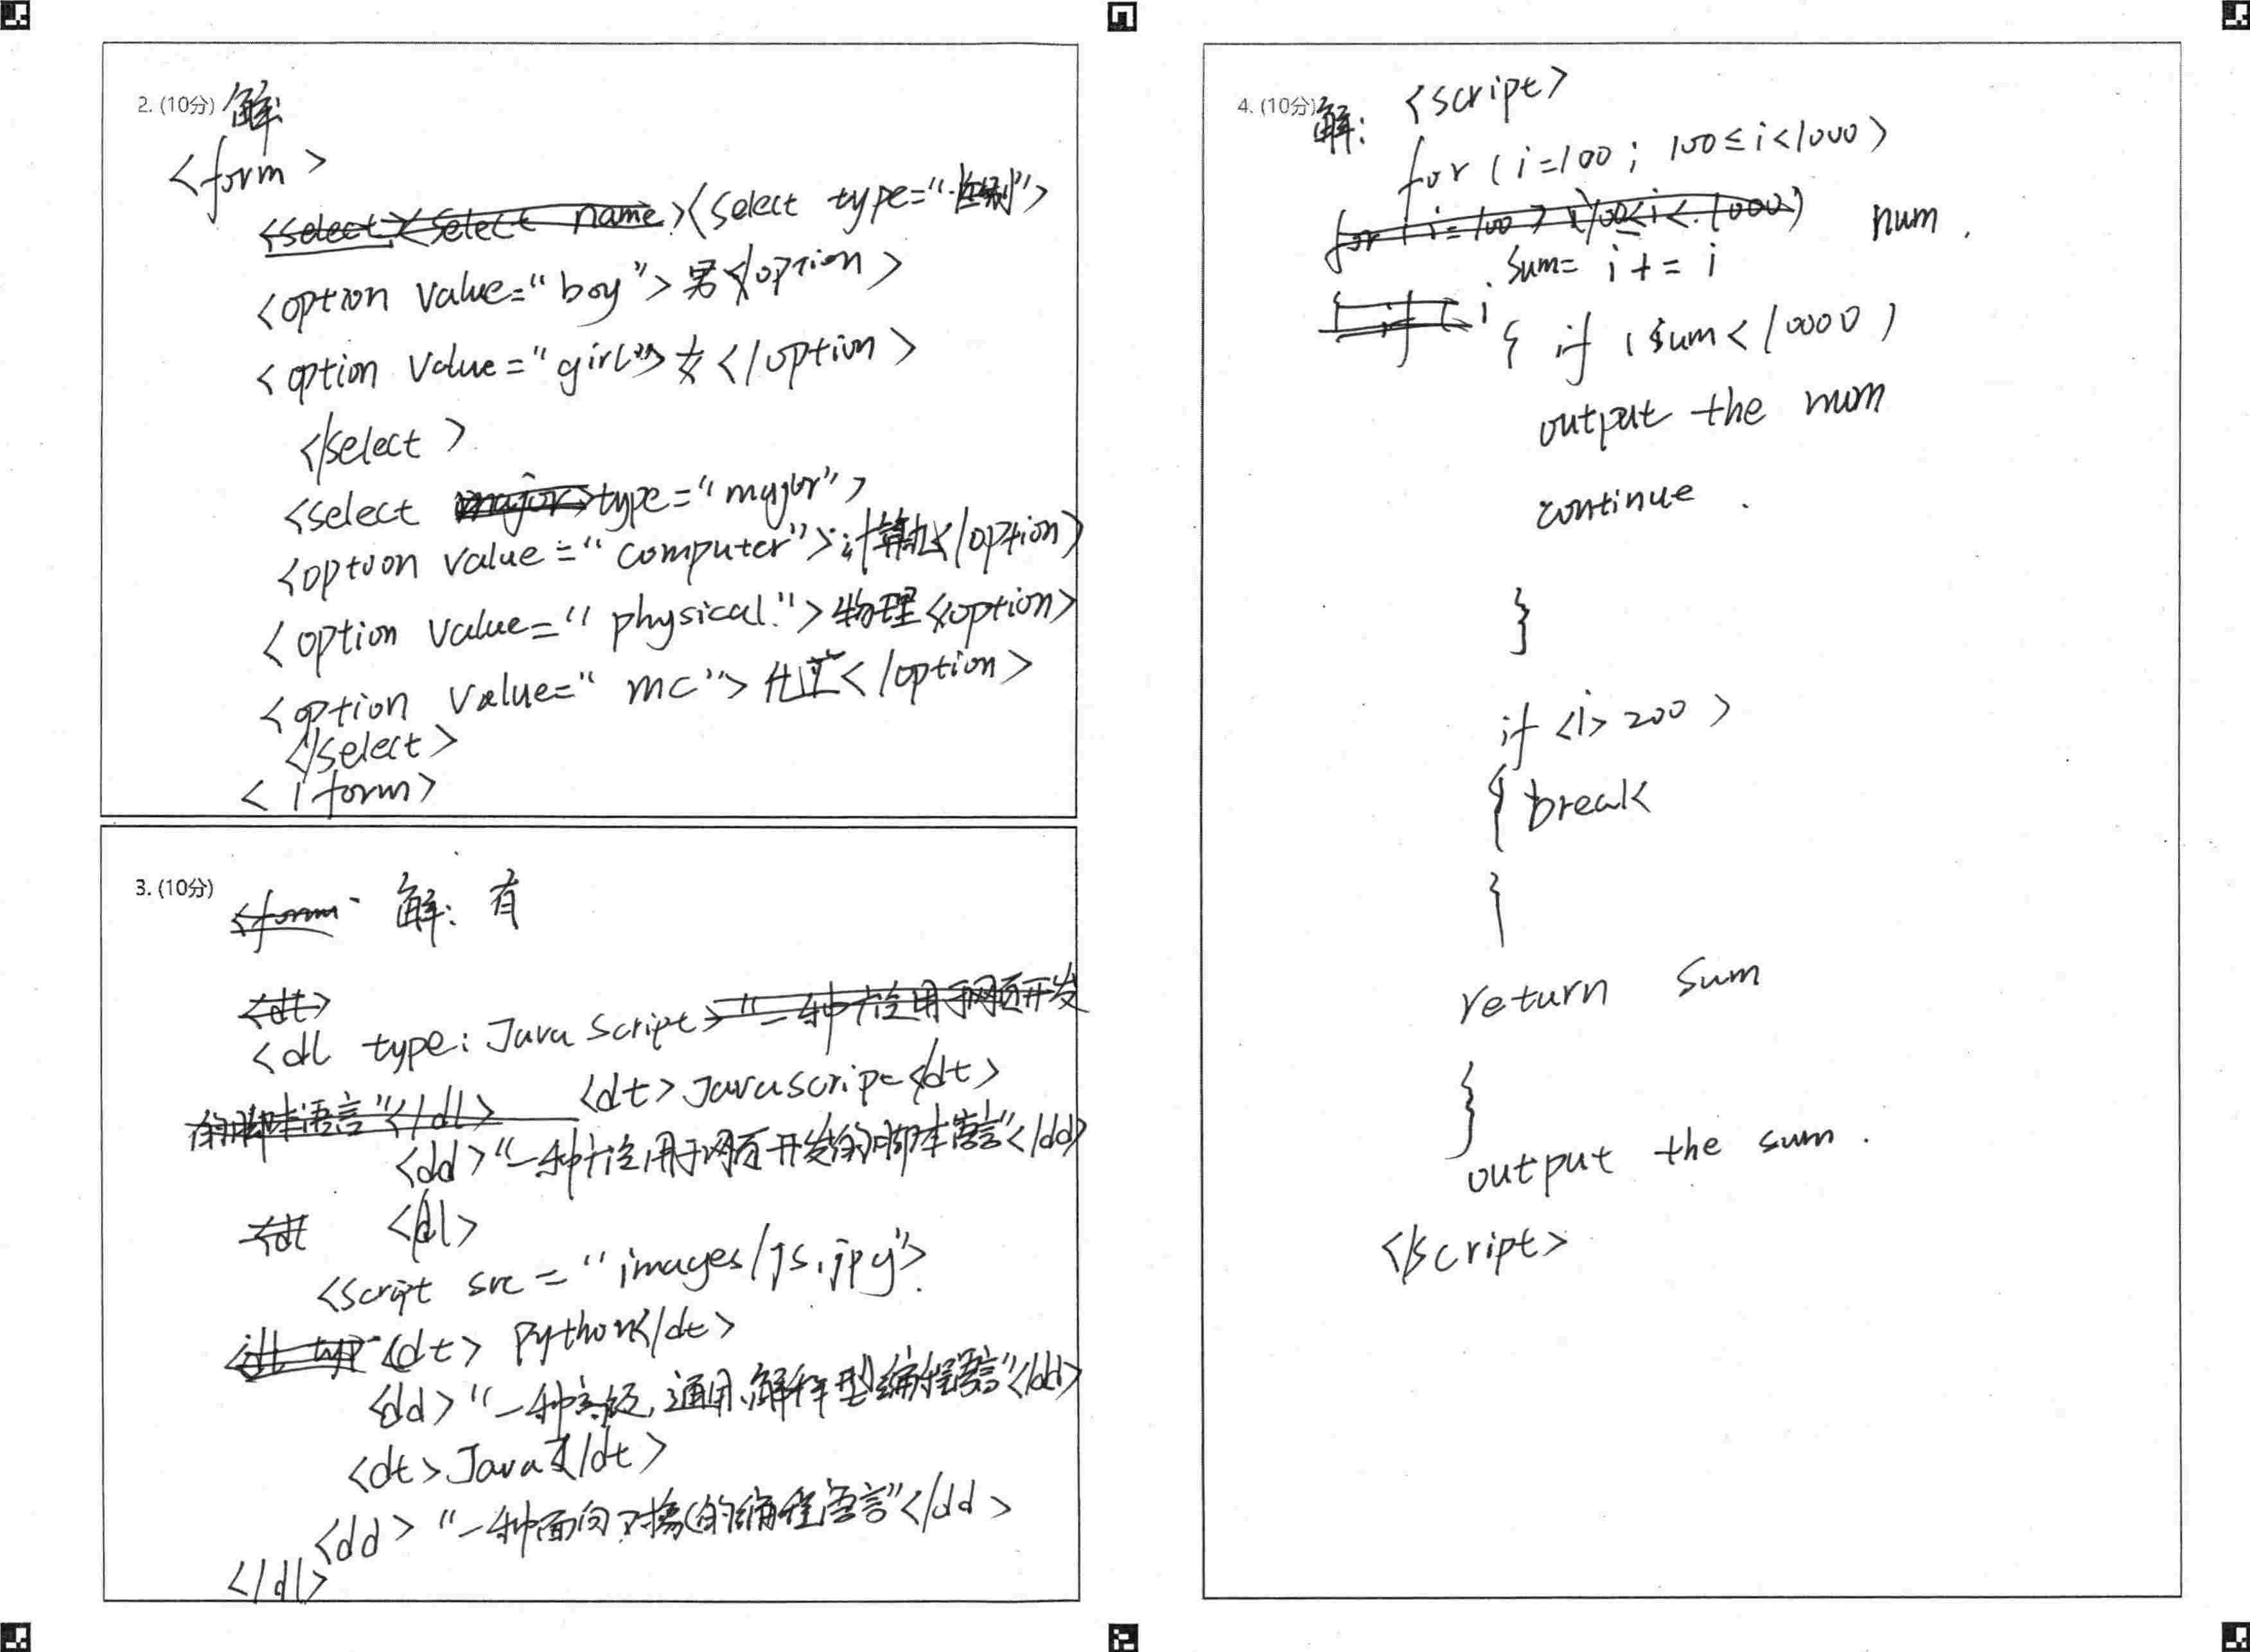 2. (10分) 解:
<form>
<select type="性别">
<option value="boy">男</option>
<option value="girl">女</option>
</select>
<select type="major">
<option value="computer">计算机</option>
<option value="physical">物理</option>
<option value="mc">化工</option>
</select>
</form>
3. (10分) 解: 有
<dl type: JavaScript>
<dt>Javascript</dt>
<dd>"一种广泛用于网页开发的脚本语言"</dd>
</dl>
<script src="images/js.jpg">
<dt>Python</dt>
<dd>"一种高级,通用、解释型编程语言"</dd>
<dt>Java</dt>
<dd>"一种面向对象的编程语言"</dd>
</dl>
4. (10分) 解: <script>
for (i=100; 100≤i<1000)
num.
sum= i+=i
{ if (sum<10000)
output the num
continue.
}
if <i>200>
{ break
}
return sum
}
output the sum.
</script>